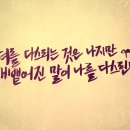 너를 다스리는 것은 나지만
내뱉어진 말이 나를 다스린다